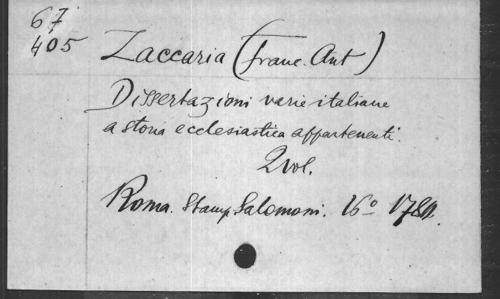 67
405
Zaccaria (Franc. Ant)
Dissertazioni varie italiane
a storia ecclesiastica appartenenti.
2 vol.
Roma. Stamp Salomoni. 16º